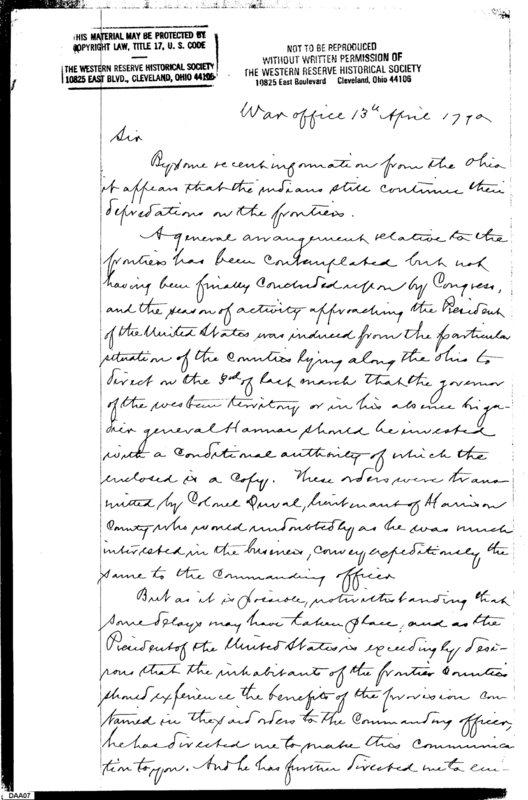 THIS MATERIAL MAY BE PROTECTED BY
COPYRIGHT LAW, TITLE 17, U. S. CODE
THE WESTERN RESERVE HISTORICAL SOCIETY
10825 EAST BLVD., CLEVELAND, OHIO 44106
NOT TO BE REPRODUCED
WITHOUT WRITTEN PERMISSION OF
THE WESTERN RESERVE HISTORICAL SOCIETY
10825 East Boulevard Cleveland, Ohio 44106
War office 13th April 1790
Sir
By some recent information from the Ohio
it appears that the indians still continue their
depredations on the frontiers.
A general arrangement relative to the
frontiers has been contemplated but not
having been finally concluded upon by Congress,
and the season of activity approaching the President
of the United States was induced from the particular
situation of the Counties lying along the Ohio to
direct on the 3d of last march that the governor
of the western territory or in his absence briga-
dier general Harmar should be invested
with a Conditional authority of which the
enclosed is a Copy. These orders were trans
mitted by Colonel Duval, lieutenant of Harrison
County who would undoubtedly as he was much
interested in the business, convey expeditiously the
same to the Commanding officer
But as it is possible, notwithstanding that
some delays may have taken place, and as the
President of the United States is exceedingly desi-
rous that the inhabitants of the frontier Counties
should experience the benefits of the provision con
tained in the said orders to the Commanding officer,
he has directed me to make this communica
tion to you. And he has further directed me to em-
DAA07